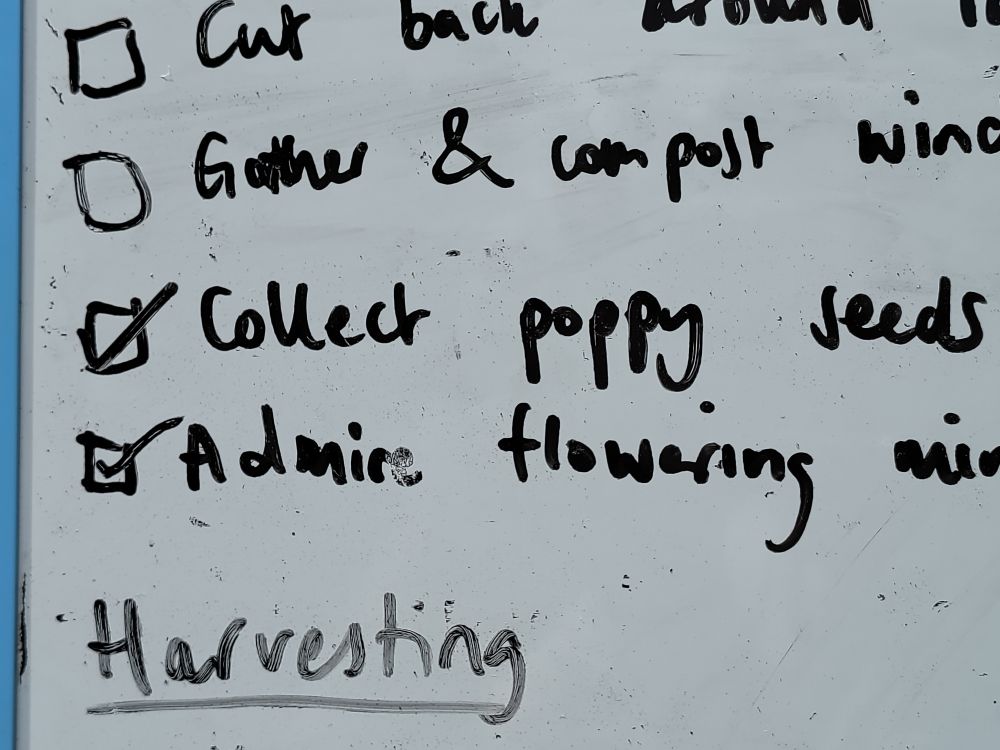 Cut back around
Gather & compost
Collect poppy seeds
Admire flowering
Harvesting